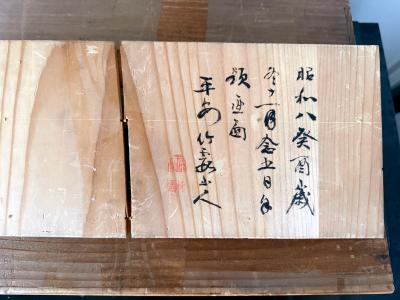 昭和八癸酉歳
冬十一月念五日
題函面
平安竹霞山人